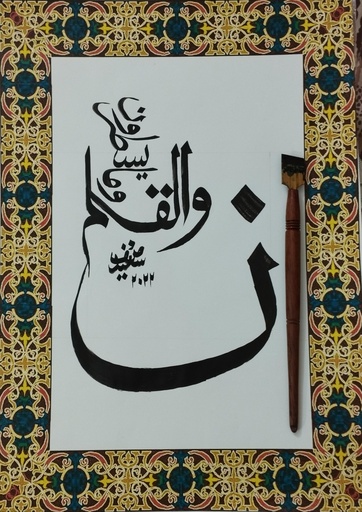 ن
والقلم
وما
يسطرون
٢٠٢٢